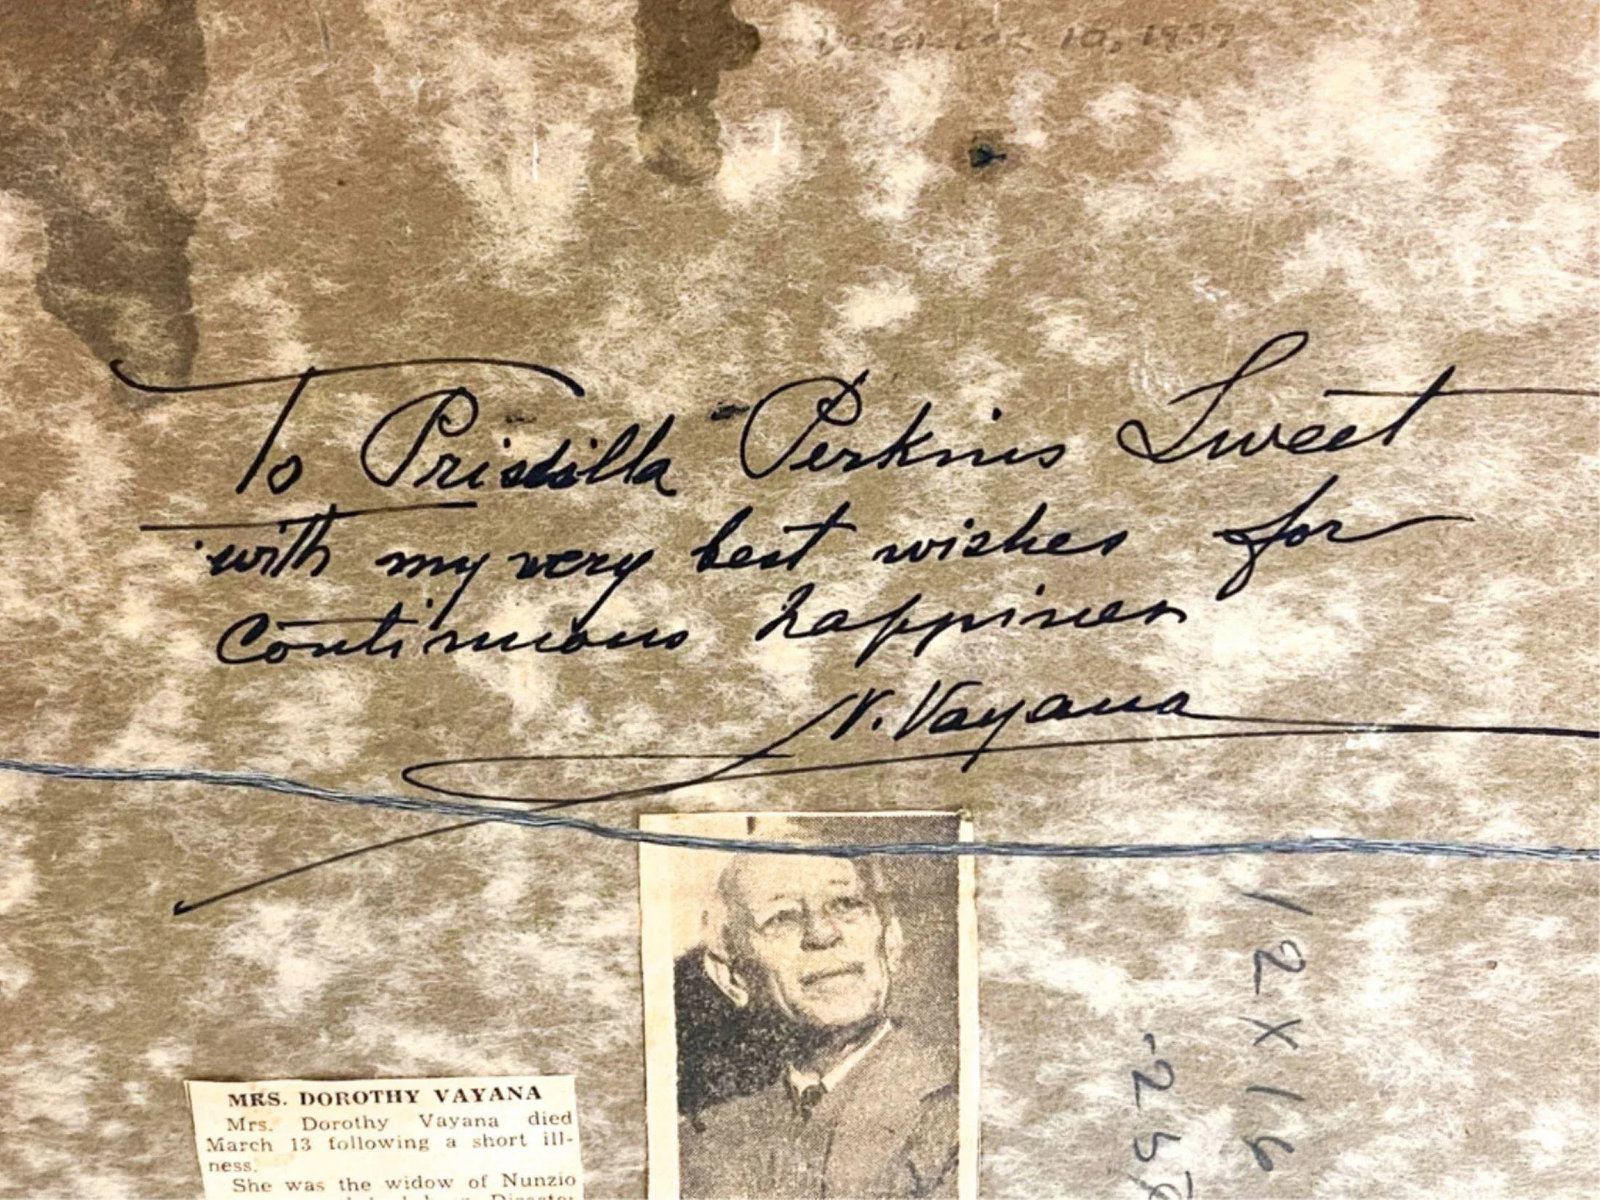 December 10, 1937
To Priscilla Perkins Sweet
with my very best wishes for
continuous happiness
N. Vayana
12 X 16
MRS. DOROTHY VAYANA
Mrs. Dorothy Vayana died
March 13 following a short ill-
ness.
She was the widow of Nunzio